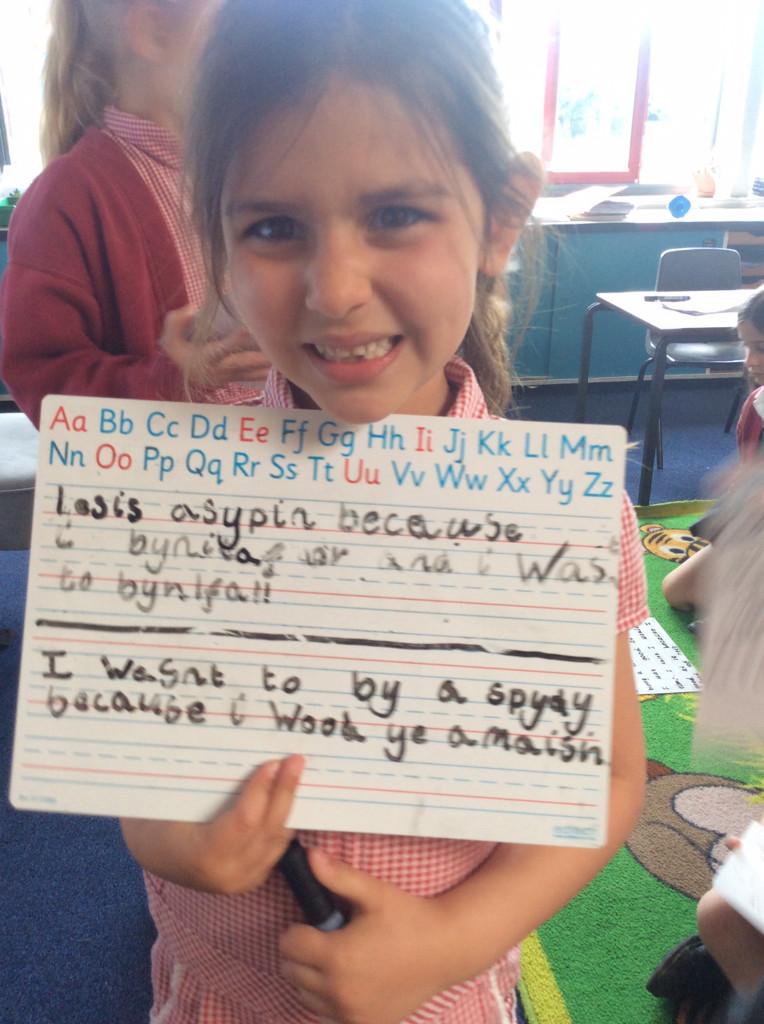 Aa Bb Cc Dd Ee Ff Gg Hh Ii Jj Kk Ll Mm
Nn Oo Pp Qq Rr Ss Tt Uu Vv Ww Xx Yy Zz
asypin because
i and i Was
to
I Wasnt to by a spydy
because i Wook ye amaish